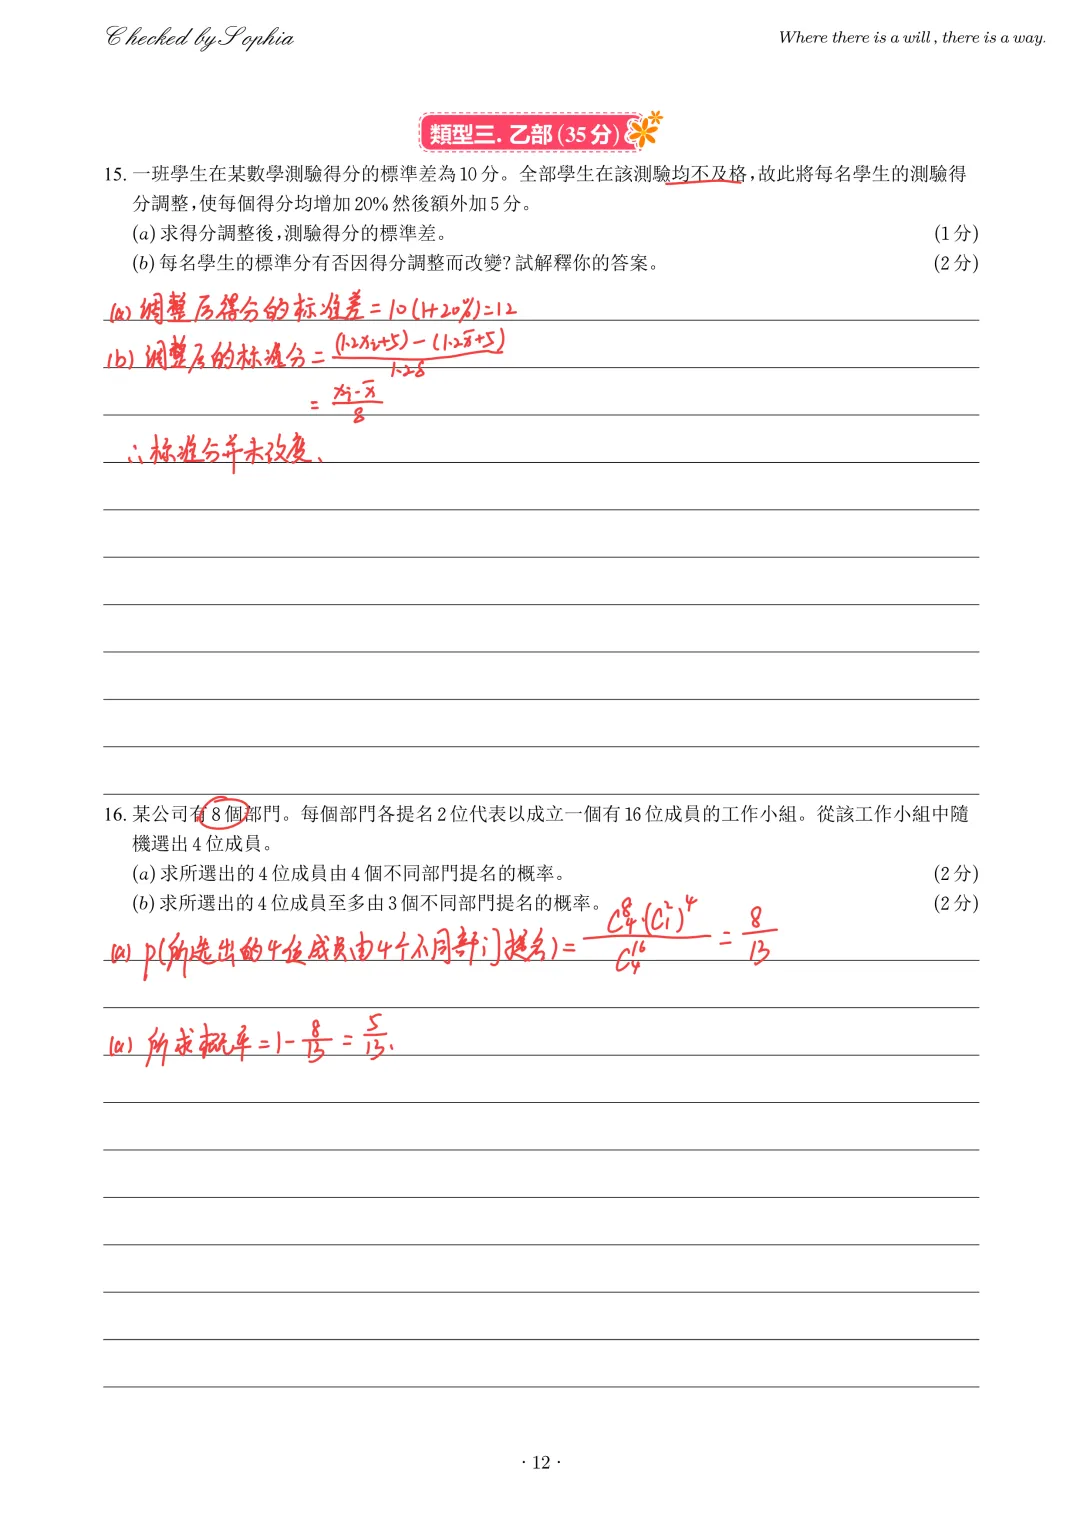 Checked by Sophia
Where there is a will , there is a way.
類型三. 乙部 (35 分)
15. 一班學生在某數學測驗得分的標準差為 10 分。全部學生在該測驗均不及格，故此將每名學生的測驗得
分調整，使每個得分均增加 20% 然後額外加 5 分。
(a) 求得分調整後，測驗得分的標準差。 (1 分)
(b) 每名學生的標準分有否因得分調整而改變? 試解釋你的答案。 (2 分)
(a) 調整后得分的标准差 = 10 (1+20%) = 12
(b) 調整后的标准分 = \frac{(1.2x_i+5) - (1.2\bar{x}+5)}{1.2δ}
= \frac{x_i - \bar{x}}{δ}
∴ 标准分并未改度、
16. 某公司有 8 個部門。每個部門各提名 2 位代表以成立一個有 16 位成員的工作小組。從該工作小組中隨
機選出 4 位成員。
(a) 求所選出的 4 位成員由 4 個不同部門提名的概率。 (2 分)
(b) 求所選出的 4 位成員至多由 3 個不同部門提名的概率。 (2 分)
(a) P(所选出的4位成员由4个不同部门提名) = \frac{C_4^8·(C_1^2)^4}{C_4^{16}} = \frac{8}{13}
(a) 所求概率 = 1 - \frac{8}{13} = \frac{5}{13}、
· 12 ·